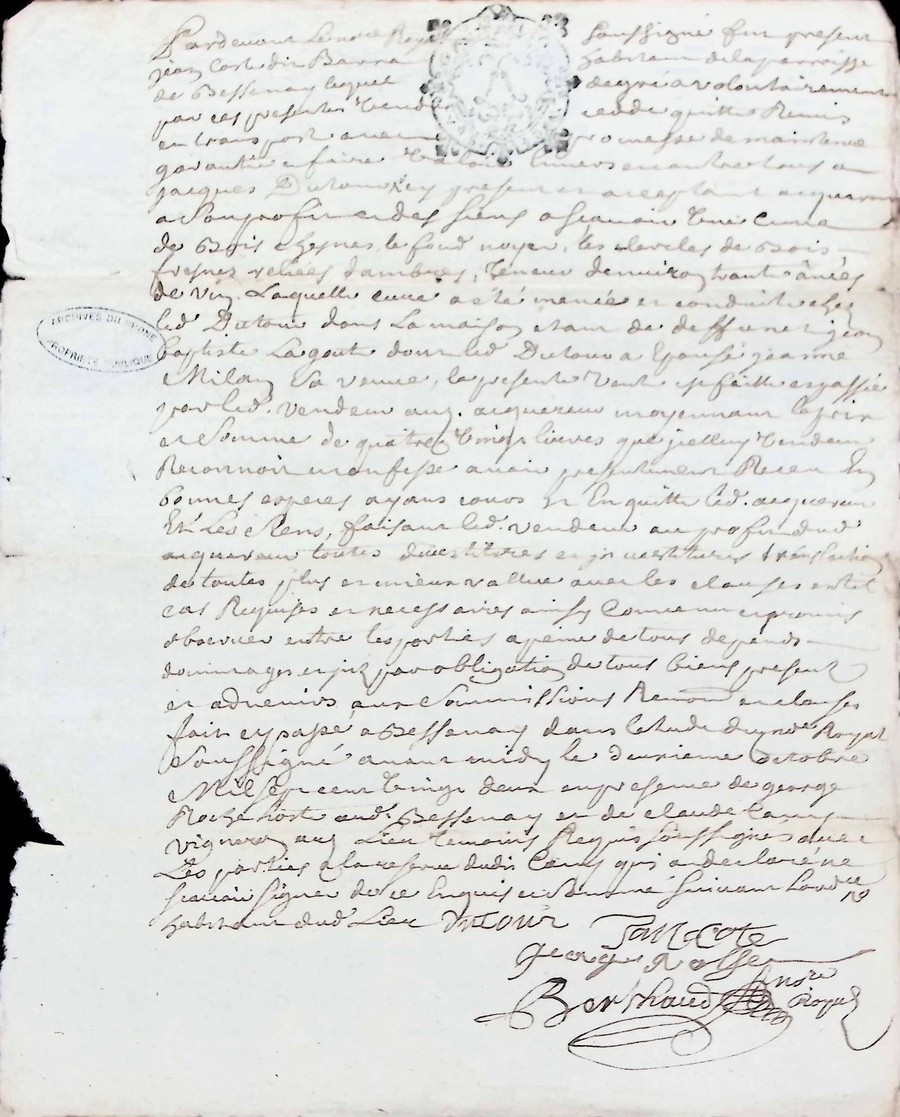 Pardevant Lenore Royal soussigné fut present
jean Cost dit Barra habitant dela parroisse
de Bessenay lequel degré a volontairement
par ces presentes Vend cedde quitte Remis
et transporte avec promesse de maintenue
garantie faire envers et contre tous a
jacques Dutour present et acceptant acquereur
a son profit et des siens a scavoir Une Cuve
de Bois chesnes, le fond noyer, les cercles de Bois
fresnes reliees, teneur denviron trante anées
de vin, Laquelle cuve a été menée et conduite chez
led. Dutour dans La maison de deffunct jean
baptiste Lagout dont led. Dutour a Epousé jeanne
Milan sa veuve, la presente Vente est faitte et passée
par led. vendeur aud. acquereur moyennant le prix
et Somme de quatre Vingt livres que jcelluy Vendeur
Reconnoit et confesse avoir presentement Receu En
bonnes especes ayant cours Et En quitte led. acquereur
Et Les siens, faisant led. vendeur au profit dud.
acquereur toutes devestitures et jnvestitures translation
de toutes plus et mieux vallue avec les clauses en tel
cas Requises et necessaires ainsy Convenu et promis
observer entre les parties a peine de tous depends
dommages et jnt. par obligation de tous biens present
et advenirs aux Soummissions Renon. et clauses
fait et passé, a Bessenay dans letude dud. nore. Royal
Soussigné avant midy le deuxieme octobre
Mil Sept cent Vingt deux en presence de george
Roche hoste aud. Bessenay et de claude Camy
vigneron aud. Lieu temoins Requis Soussignes avec
Les parties a la reserve dudit Camy qui a declaré ne
scavoir signer de ce Enquis et Sommé Suivant Lordce
habitant dud. Lieu DUTOUR Jan Cote
george Roche
Berthaud nore Royal
ARCHIVES DU RHONE
PROPRIETE PUBLIQUE